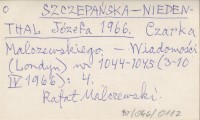 0 SZCZEPAŃSKA-NIEDEN-
THAL Józefa 1966. Czarka
Malczewskiego. – Wiadomości
(Londyn) nr 1044-1045 (3-10
IV 1966) s. 4.
Rafał Malczewski.